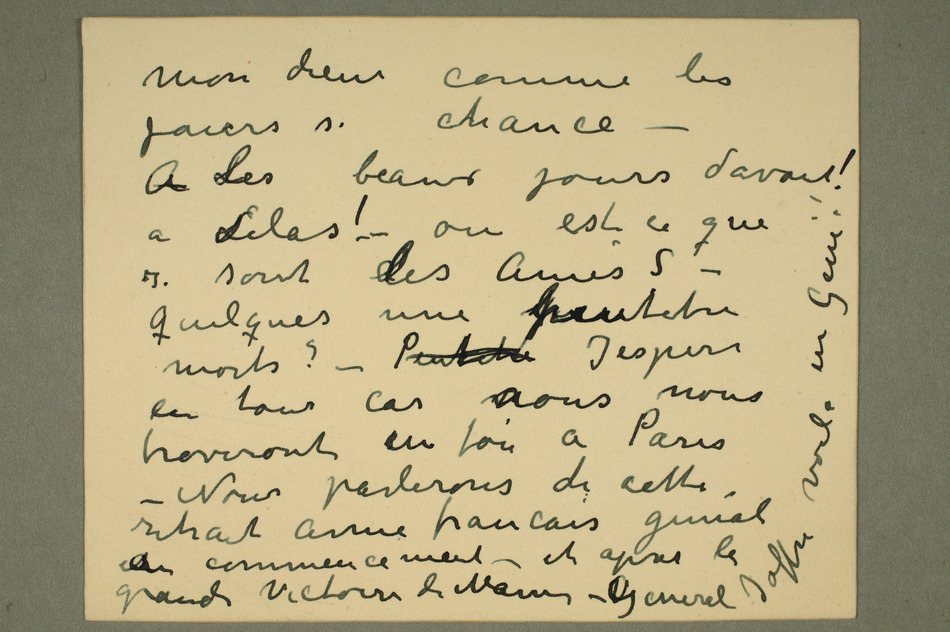 mon dieu comme les
jaiers s. chance —
A Les beaux jours d'avant!
a Lilas! — ou est ce que
n. sont les Amies S —
quelques une peutetre
morts? — Peutetre J'esper
en tour cas nous nous
troveront un foi a Paris
— Nous parlerons de cette
retrait arme francais genial
au commencement — et apres la
grande Victoire de Marne — General
Joffre voila un Geni!!